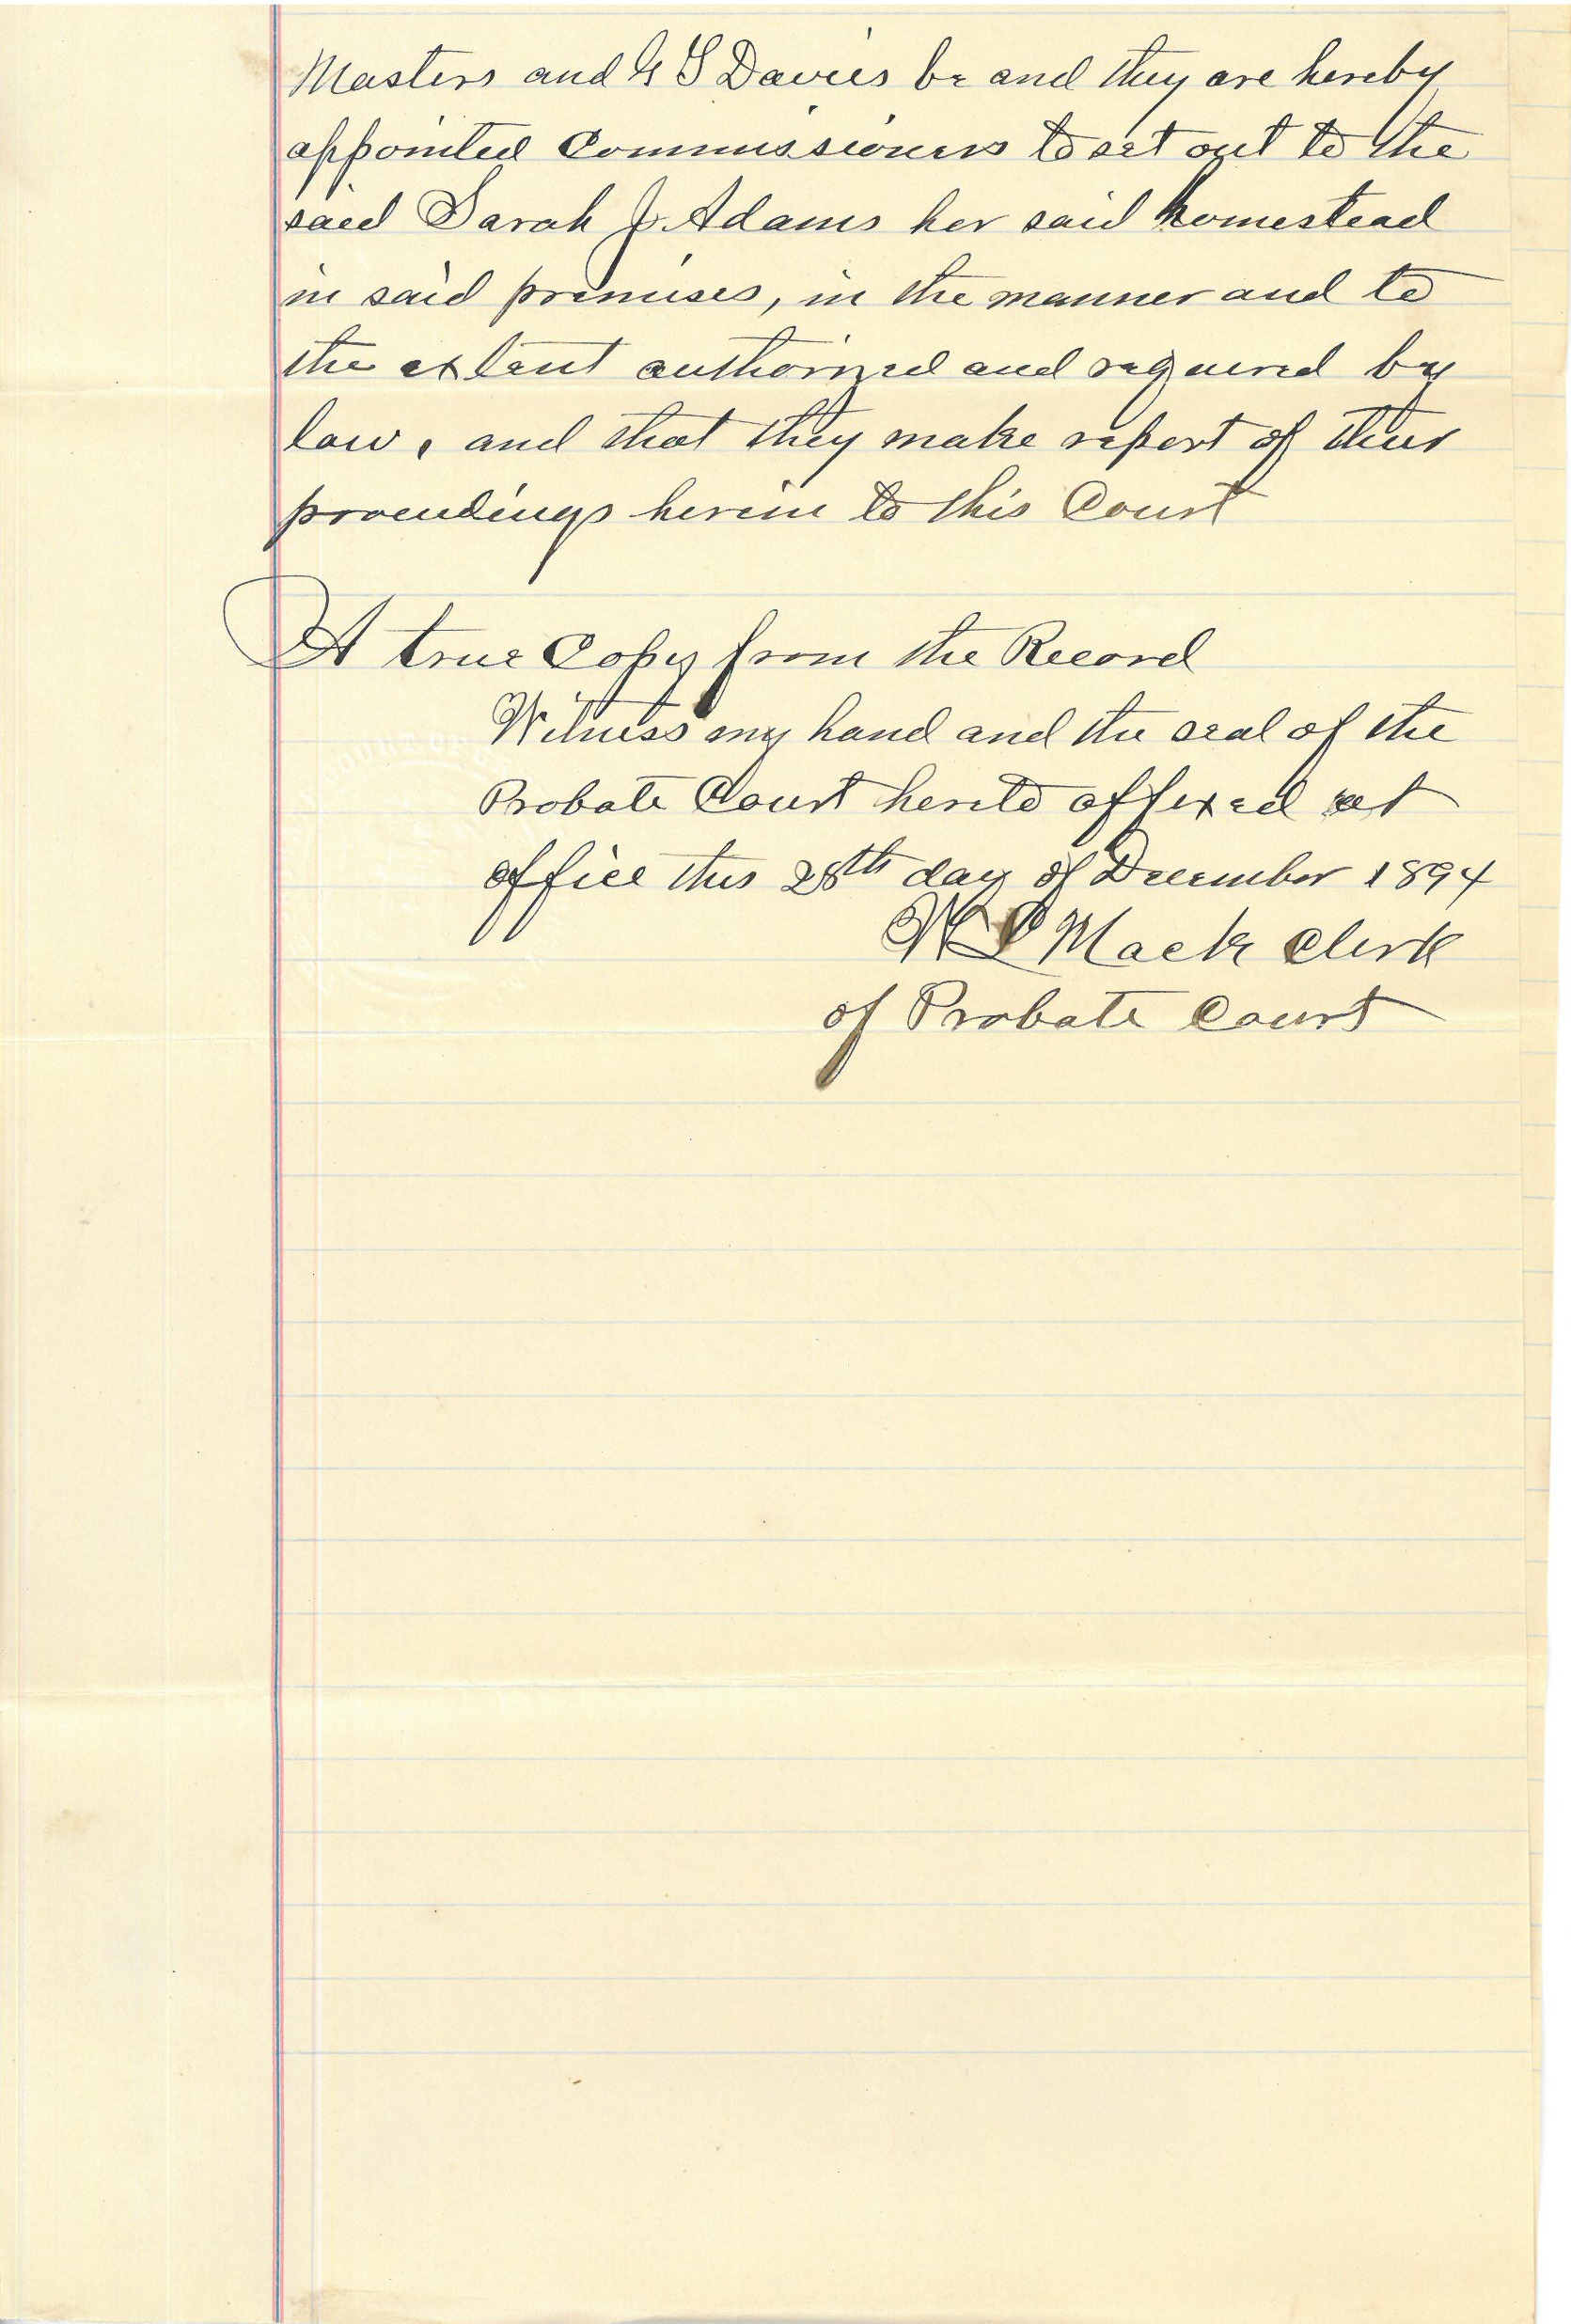 Masters and G S Davies be and they are hereby
appointed Commissioners to set out to the
said Sarah J. Adams her said homestead
in said premises, in the manner and to
the extent authorized and required by
law, and that they make report of their
proceedings herein to this Court
A true Copy from the Record
Witness my hand and the seal of the
Probate Court hereto affixed at
office this 28th day of December 1894
Mack Clerk
of Probate Court
COURT OF